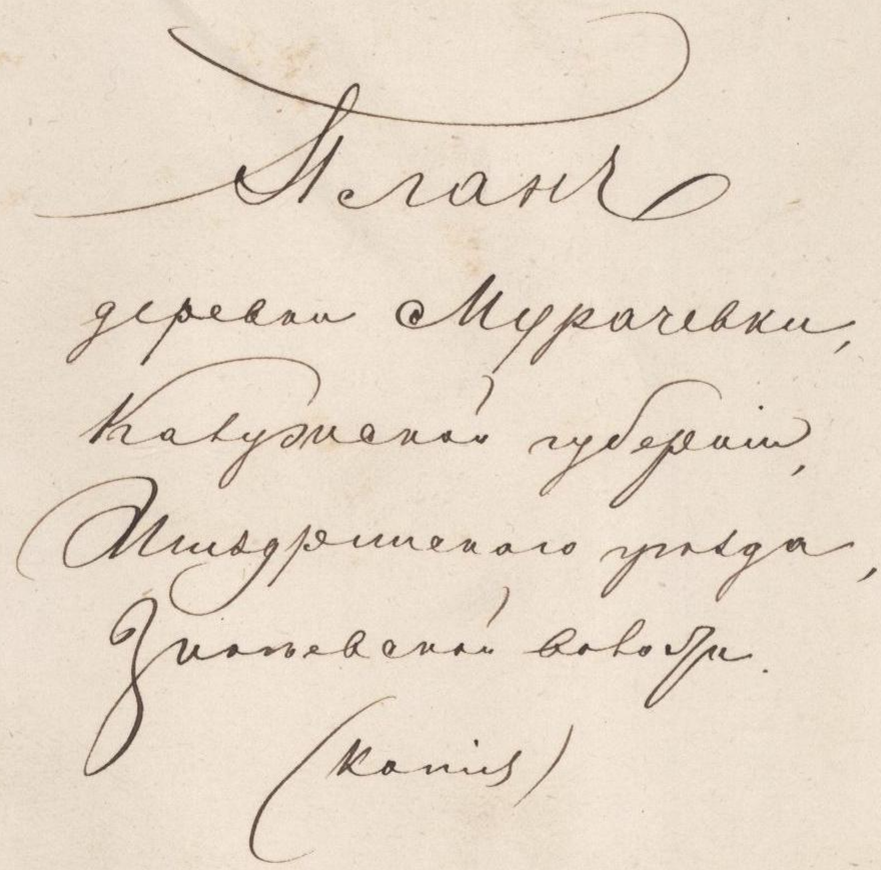 Планъ
деревни Мурачевки,
Калужской губерніи,
Жиздринскаго уѣзда,
Зикѣевской волости.
(копія)